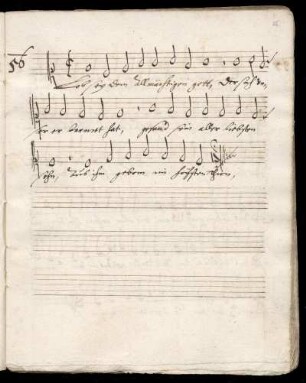 56
Lob sey dem Allmechtigen gott, der sich un-
ser erbarmet hat, gesand sein aller liebsten
sohn, aus ihm geborn im höchsten thron,